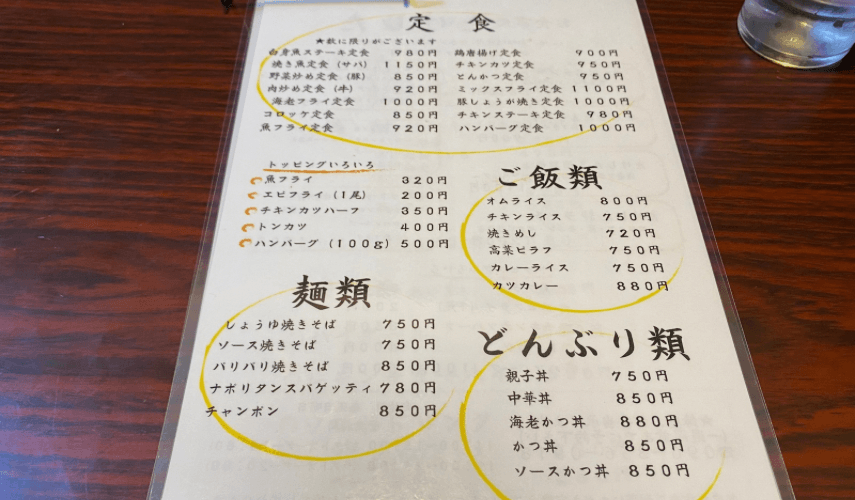 定食
★数に限りがございます
白身魚ステーキ定食 980円
焼き魚定食（サバ） 1150円
野菜炒め定食（豚） 850円
肉炒め定食（牛） 920円
海老フライ定食 1000円
コロッケ定食 850円
魚フライ定食 920円
鶏唐揚げ定食 900円
チキンカツ定食 950円
とんかつ定食 950円
ミックスフライ定食 1100円
豚しょうが焼き定食 1000円
チキンステーキ定食 980円
ハンバーグ定食 1000円
トッピングいろいろ
魚フライ 320円
エビフライ（1尾） 200円
チキンカツハーフ 350円
トンカツ 400円
ハンバーグ（100g） 500円
ご飯類
オムライス 800円
チキンライス 750円
焼きめし 720円
高菜ピラフ 750円
カレーライス 750円
カツカレー 880円
麺類
しょうゆ焼きそば 750円
ソース焼きそば 750円
パリパリ焼きそば 850円
ナポリタンスパゲッティ 780円
チャンポン 850円
どんぶり類
親子丼 750円
中華丼 850円
海老かつ丼 880円
かつ丼 850円
ソースかつ丼 850円